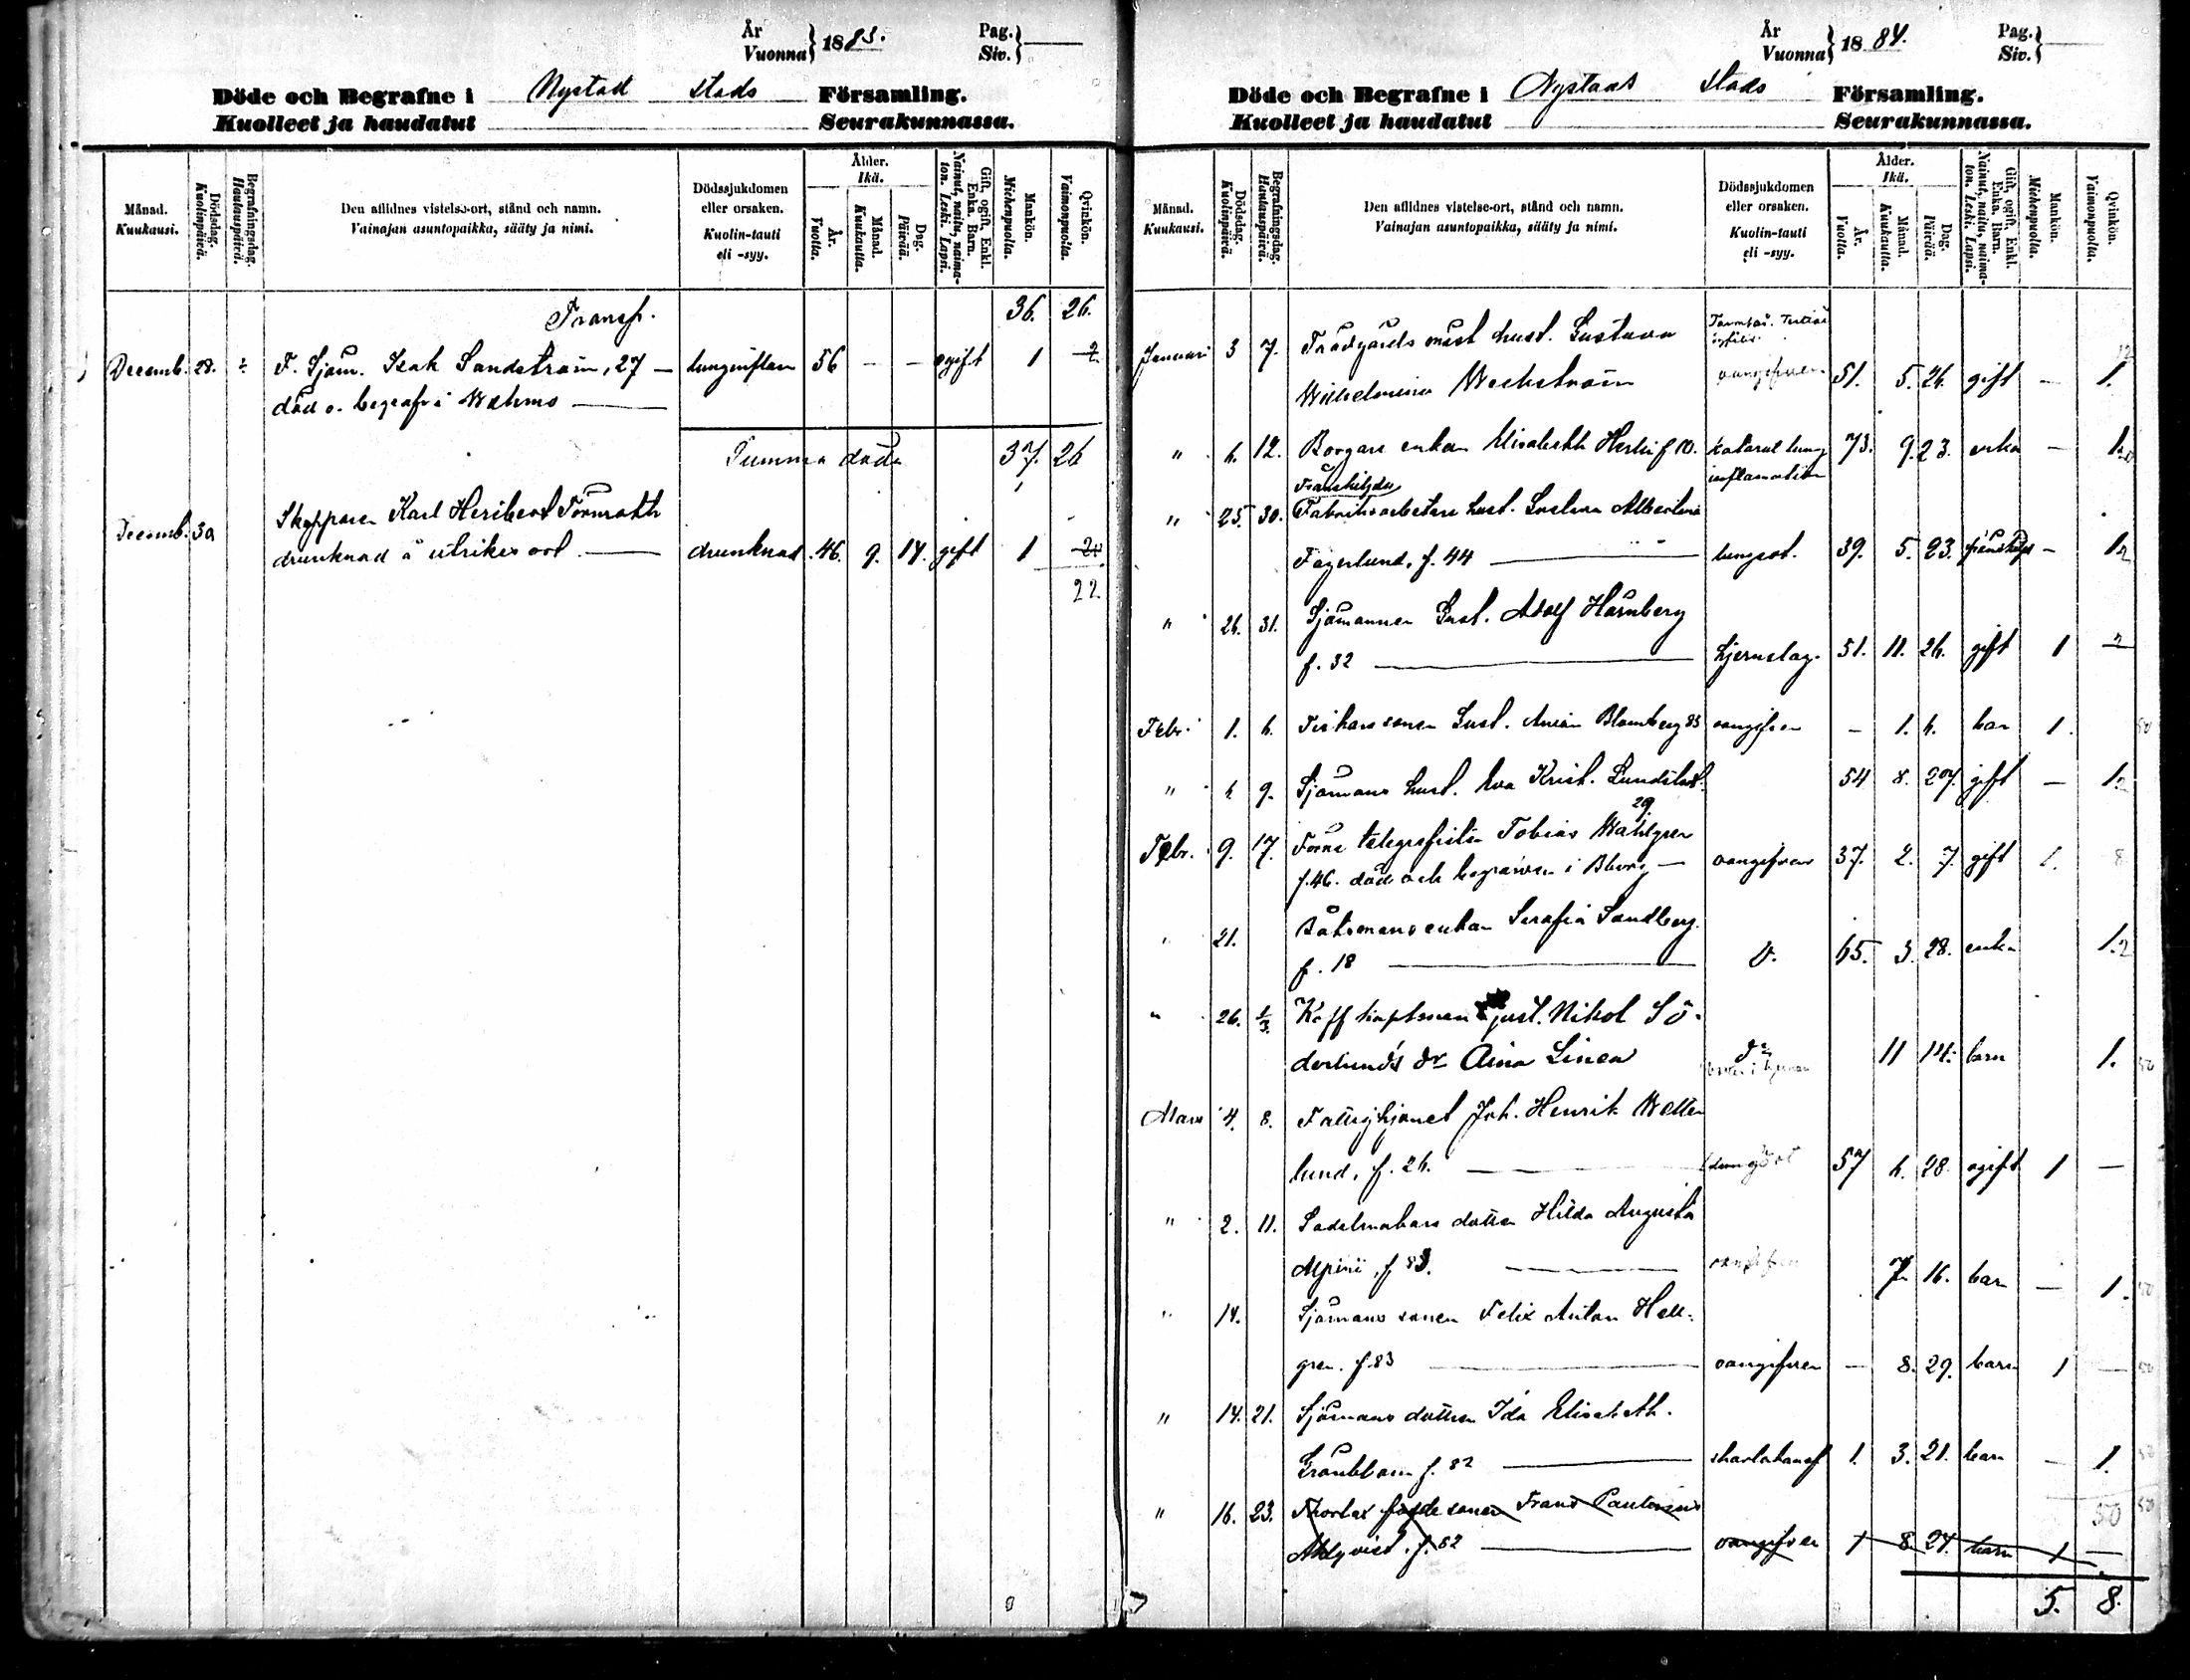 År
Vuonna } 1883.
Pag.
Siv. }
Döde och Begrafne i Nystad stads Församling.
Kuolleet ja haudatut Seurakunnassa.
Månad. Kuukausi.
Dödsdag. Kuolinpäivä.
Begrafningsdag. Hautauspäivä.
Den aflidnes vistelse-ort, stånd och namn.
Vainajan asuntopaikka, sääty ja nimi.
Dödssjukdomen eller orsaken.
Kuolin-tauti eli -syy.
Ålder. Ikä.
År. Vuotta.
Månad. Kuukautta.
Dag. Päivää.
Gift, ogift, Enkl. Enka. Barn.
Nainut, naitu, naimaton. Leski. Lapsi.
Mankön. Miehenpuolta.
Qvinkön. Vaimonpuolta.
Transp. 36. 26.
Decemb. 28. F. Sjöm. Isak Sandström, 27 — lunginflam 56 — — ogift 1
död o. begrafv i Wehmo
Summa döda 37. 26
Decemb. 30 Skepparen Karl Heribert Törnroth
drunknad å utrikes ort. drunknad 46. 9. 14. gift 1
22
År
Vuonna } 1884.
Pag.
Siv. }
Döde och Begrafne i Nystads stads Församling.
Kuolleet ja haudatut Seurakunnassa.
Månad. Kuukausi.
Dödsdag. Kuolinpäivä.
Begrafningsdag. Hautauspäivä.
Den aflidnes vistelse-ort, stånd och namn.
Vainajan asuntopaikka, sääty ja nimi.
Dödssjukdomen eller orsaken.
Kuolin-tauti eli -syy.
Ålder. Ikä.
År. Vuotta.
Månad. Kuukautta.
Dag. Päivää.
Gift, ogift, Enkl. Enka. Barn.
Nainut, naitu, naimaton. Leski. Lapsi.
Mankön. Miehenpuolta.
Qvinkön. Vaimonpuolta.
Januari 3 7. Trädgårds mäst. hust. Gustava
Wilhelmina Weckström oangifven 51. 5. 26. gift — 1.
" 6. 12. Borgare enkan Elisabeth Herlin f 10. katarral lung 73. 9. 23. enka — 1
inflamation
Frånskilda
" 25. 30. Fabriksarbetare hust. Gustava Albertina
Fagerlund, f. 44 lungsot. 39. 5. 23. frånskild — 1
" 26. 31. Sjömannen Gust. Adolf Hörnberg
f. 32 hjernslag. 51. 11. 26. gift 1
Febr. 1. 6. Fiskare sonen Gust. Anian Blomberg 83 oangifven — 1. 6. barn 1.
" 6. 9. Sjömans hust. Eva Krist. Lundstedt. 54 8. 27. gift — 1.
29
Febr. 9. 17. Förre telegrafisten Tobias Wahlgren
f. 46. död och begraven i Åborg oangifven 37. 2. 7. gift 1.
" 21. Båtsmans enkan Serafia Sandberg.
f. 18 D. 65. 3. 28. enka 1.
" 26. 1/3. Koff kaptenen Gust. Nikol Sö-
derlunds dr Aina Linea 11 14. barn 1.
Mars 4. 8. Fattighjonet Joh. Henrik Wetter
lund, f. 26. lungsot 57 6. 28. ogift 1 —
" 2. 11. Sadelmakare dotter Hilda Augusta
Alpini, f 83. oangifven 7 16. barn — 1.
" 14. Sjömans sonen Felix Anton Hell-
gren. f. 83 oangifven — 8. 29. barn 1 —
" 14. 21. Sjömans dottern Ida Elisabeth.
Grönblom f. 82 skarlakansf 1. 3. 21. barn — 1.
" 16. 23. sonen Frans
Ahlqvist. f. 82 oangifven 1 8. 24. barn 1 —
5. 8.